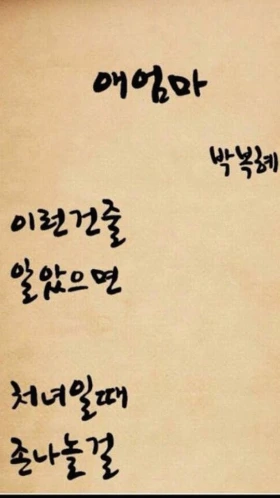 애엄마
박복혜
이런건줄
알았으면
처녀일때
존나놀걸